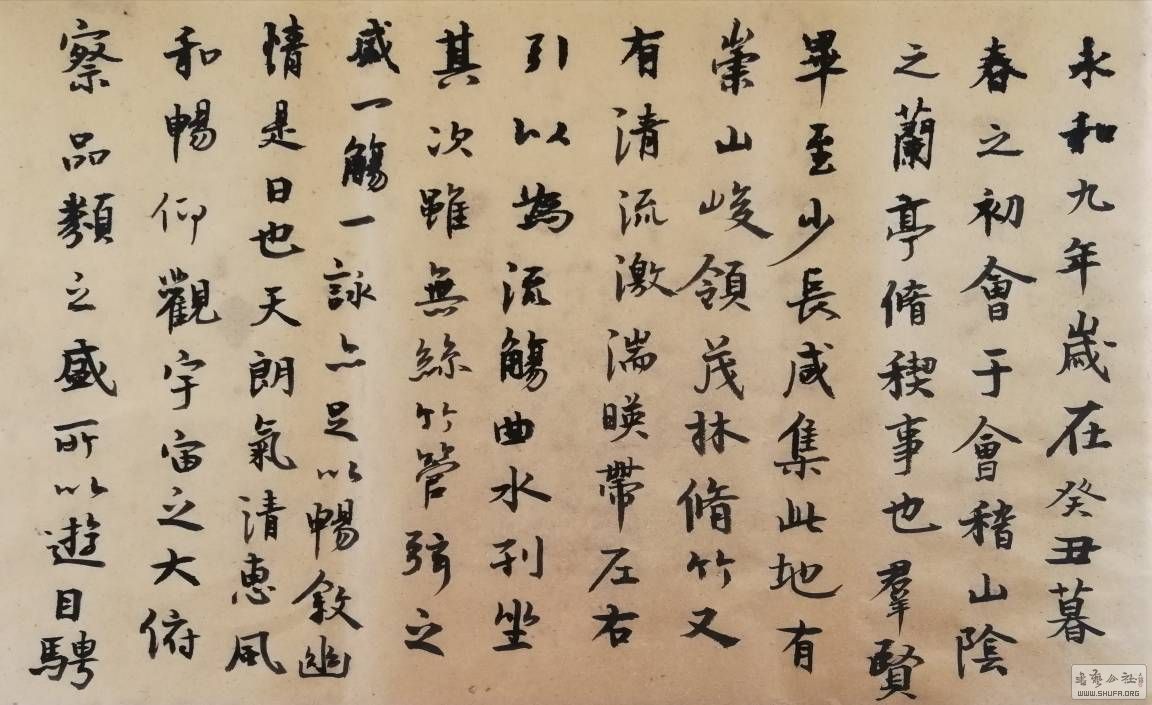 永和九年歲在癸丑暮
春之初會于會稽山陰
之蘭亭脩稧事也羣賢
畢至少長咸集此地有
崇山峻領茂林脩竹又
有清流激湍暎帶左右
引以為流觴曲水列坐
其次雖無絲竹管弦之
盛一觴一詠亦足以暢敘幽
情是日也天朗氣清惠風
和暢仰觀宇宙之大俯
察品類之盛所以遊目騁
WWW.SHUFA.ORG